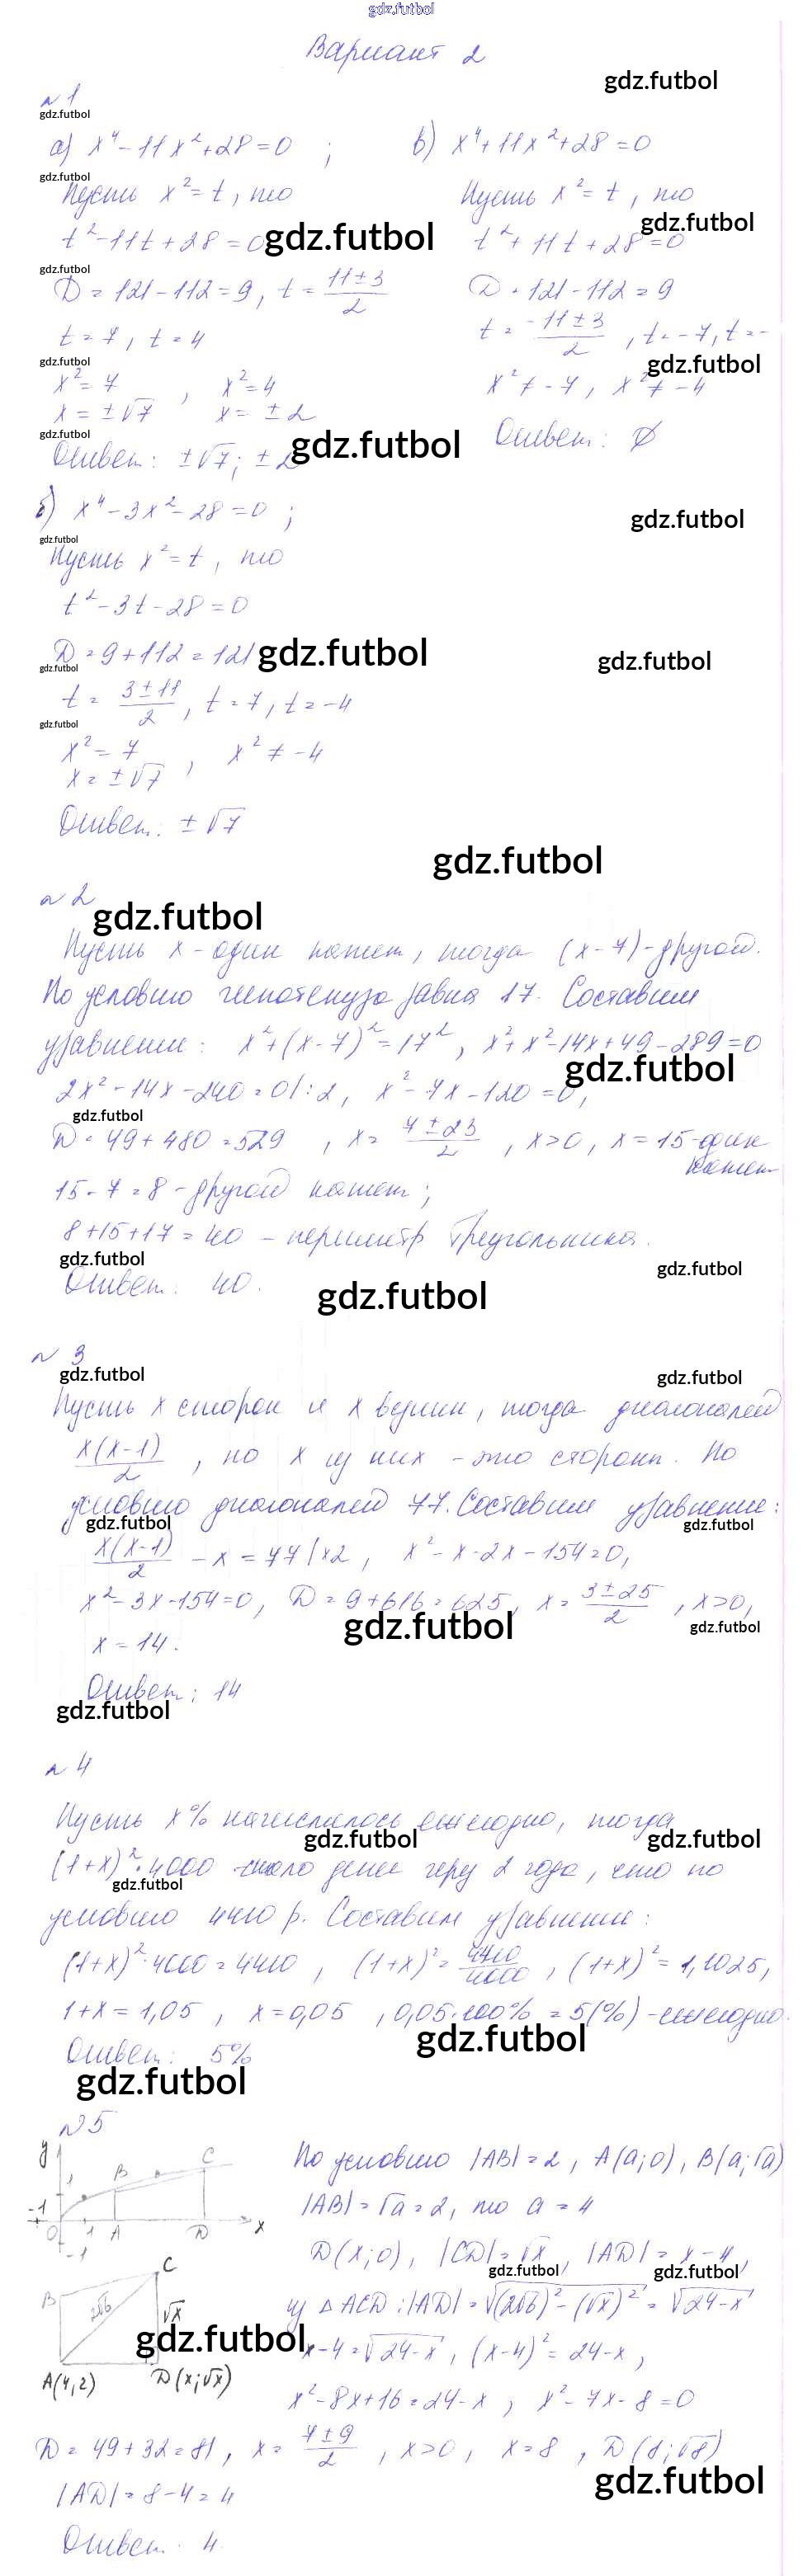 gdz.futbol
Вариант 2
gdz.futbol
№1
gdz.futbol
а) x⁴-11x²+28=0 ;
в) x⁴+11x²+28=0
gdz.futbol
Пусть x²=t, то
Пусть x²=t, то
gdz.futbol
t²-11t+28=0
gdz.futbol
t²+11t+28=0
gdz.futbol
D=121-112=9, t=(11±3)/2
D=121-112=9
t=7, t=4
t=(-11±3)/2, t=-7, t=-
gdz.futbol
gdz.futbol
x²=7 , x²=4
x²≠-7, x²≠-4
x=±√7 x=±2
gdz.futbol
gdz.futbol
Ответ: ∅
Ответ: ±√7; ±2
б) x⁴-3x²-28=0 ;
gdz.futbol
gdz.futbol
Пусть x²=t, то
t²-3t-28=0
D=9+112=121
gdz.futbol
gdz.futbol
gdz.futbol
t=(3±11)/2, t=7, t=-4
gdz.futbol
x²=7 , x²≠-4
x=±√7
Ответ: ±√7
gdz.futbol
№2
gdz.futbol
Пусть x-один катет, тогда (x-7)-другой.
По условию гипотенуза равна 17. Составим
уравнение: x²+(x-7)²=17², x²+x²-14x+49-289=0
gdz.futbol
2x²-14x-240=0|:2, x²-7x-120=0,
gdz.futbol
D=49+480=529 , x=(7±23)/2 , x>0, x=15-один
катет
15-7=8-другой катет;
8+15+17=40 - периметр треугольника.
gdz.futbol
gdz.futbol
Ответ: 40.
gdz.futbol
№3
gdz.futbol
gdz.futbol
Пусть x сторон и x вершин, тогда диагоналей
x(x-1)/2 , но x из них - это стороны. По
условию диагоналей 77. Составим уравнение:
gdz.futbol
gdz.futbol
x(x-1)/2 -x=77|×2, x²-x-2x-154=0,
x²-3x-154=0, D=9+616=625, x=(3±25)/2 , x>0,
gdz.futbol
gdz.futbol
x=14.
Ответ: 14
gdz.futbol
№4
Пусть x% начислялось ежегодно, тогда
gdz.futbol
gdz.futbol
(1+x)²·4000 стало денег через 2 года, что по
gdz.futbol
условию 4410 р. Составим уравнение:
(1+x)²·4000=4410 , (1+x)²=4410/4000 , (1+x)²=1,1025,
1+x=1,05 , x=0,05 , 0,05·100%=5(%)-ежегодно.
gdz.futbol
Ответ: 5%
gdz.futbol
№5
y 1 B C
-1 0 1 A D x
-1
По условию |AB|=2, A(a;0), B(a;√a)
|AB|=√a=2, то a=4
D(x;0), |CD|=√x, |AD|=x-4,
gdz.futbol
gdz.futbol
C
B 2√6 √x
A(4,2) D(x;√x)
из △ACD: |AD|=√((2√6)²-(√x)²)=√(24-x)
gdz.futbol
x-4=√(24-x), (x-4)²=24-x,
x²-8x+16=24-x , x²-7x-8=0
D=49+32=81, x=(7±9)/2 , x>0, x=8 , D(8;√8)
gdz.futbol
|AD|=8-4=4
Ответ: 4.